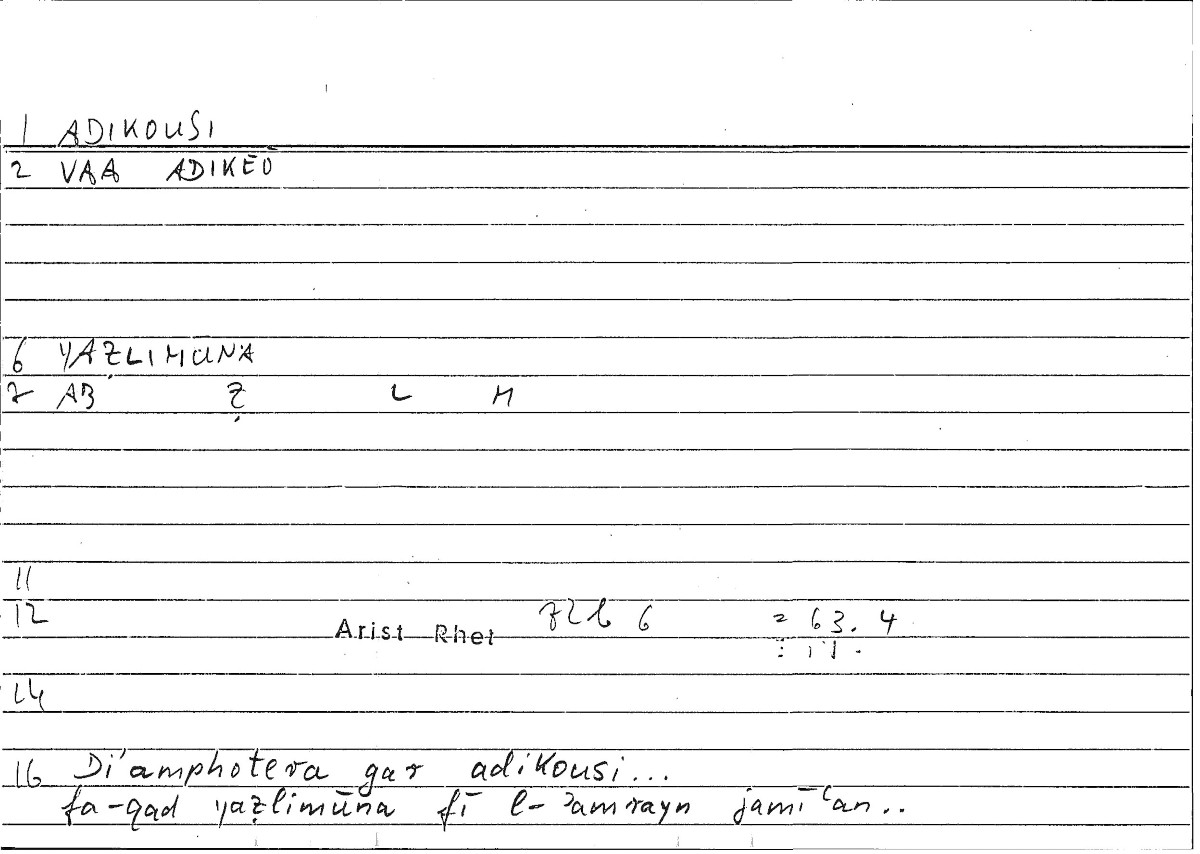 1 ADIKOUSI
2 VAA ADIKEŌ
6 YAẒLIMŪNA
7 AB Ẓ L M
11
12 Arist Rhet 72b 6 = 63. 4
14
16 Di'amphotera gar adikousi...
fa-qad yaẓlimūna fī l-ʾamrayn jamīʿan..